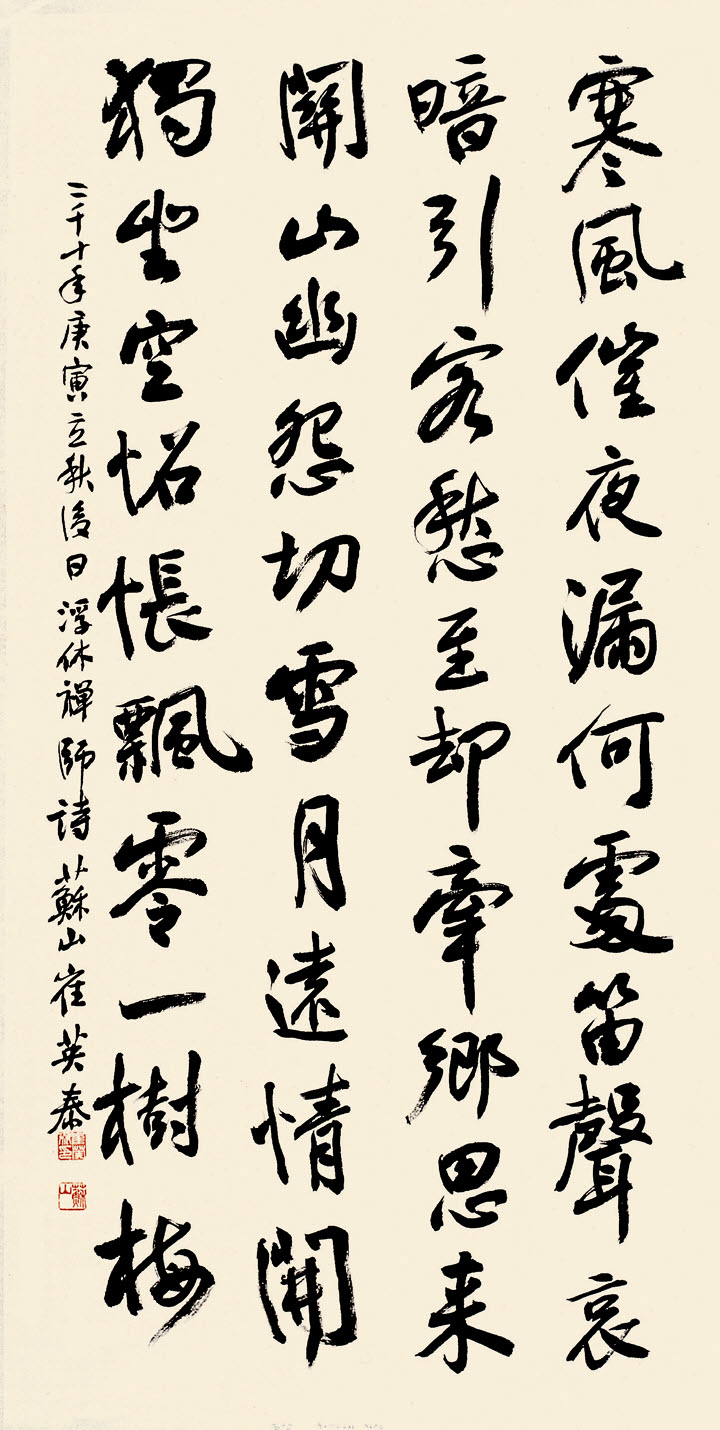 寒風催夜漏何處笛聲哀
暗引客愁至却牽鄉思来
關山幽怨切雪月遠情開
獨坐空怊悵飄零一樹梅
二千十年庚寅立秋後日浮休禪師詩蘇山崔英泰
蘇山